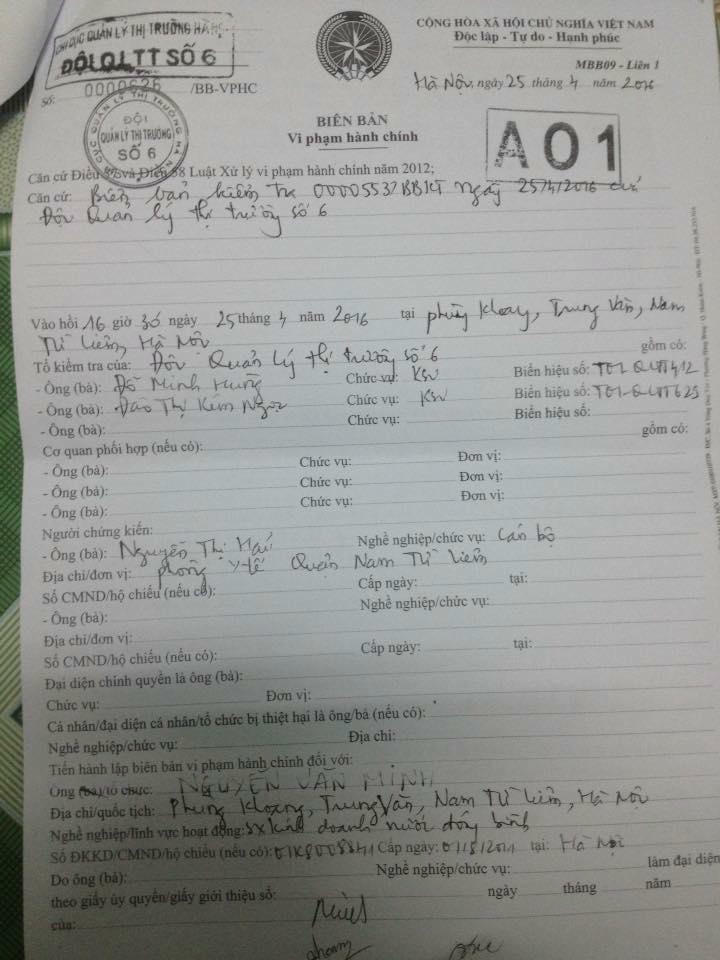 CHI CỤC QUẢN LÝ THỊ TRƯỜNG HÀ
ĐỘI QLTT SỐ 6
CỘNG HÒA XÃ HỘI CHỦ NGHĨA VIỆT NAM
Độc lập - Tự do - Hạnh phúc
MBB09 - Liên 1
Hà Nội, ngày 25 tháng 4 năm 2016
Số: 0000626 /BB-VPHC
CỤC QUẢN LÝ THỊ TRƯỜNG HÀ N
ĐỘI
QUẢN LÝ THỊ TRƯỜNG
SỐ 6
BIÊN BẢN
Vi phạm hành chính
A01
Căn cứ Điều và Điều 58 Luật Xử lý vi phạm hành chính năm 2012;
Căn cứ: Biên bản kiểm tra ngày 25/4/2016 của
Đội Quản lý thị trường số 6
Vào hồi 16 giờ 30 ngày 25 tháng 4 năm 2016 tại Phùng Khoang, Trung Văn, Nam
Từ Liêm, Hà Nội
Tổ kiểm tra của: Đội Quản lý thị trường số 6 gồm có:
- Ông (bà): Đỗ Minh Hưng Chức vụ: KSV Biển hiệu số: T01-QLTT412
- Ông (bà): Đào Thị Kim Ngọc Chức vụ: KSV Biển hiệu số: T01-QLTT625
- Ông (bà): Chức vụ: Biển hiệu số:
Cơ quan phối hợp (nếu có): gồm có:
- Ông (bà): Chức vụ: Đơn vị:
- Ông (bà): Chức vụ: Đơn vị:
- Ông (bà): Chức vụ: Đơn vị:
Người chứng kiến:
- Ông (bà): Nguyễn Thị Hải Nghề nghiệp/chức vụ: Cán bộ
Địa chỉ/đơn vị: phòng Y-tế Quận Nam Từ Liêm
Số CMND/hộ chiếu (nếu có): Cấp ngày: tại:
- Ông (bà): Nghề nghiệp/chức vụ:
Địa chỉ/đơn vị:
Số CMND/hộ chiếu (nếu có): Cấp ngày: tại:
Đại diện chính quyền là ông (bà):
Chức vụ: Đơn vị:
Cá nhân/đại diện cá nhân/tổ chức bị thiệt hại là ông/bà (nếu có):
Nghề nghiệp/chức vụ: Địa chỉ:
Tiến hành lập biên bản vi phạm hành chính đối với:
Ông (bà)/tổ chức: NGUYỄN VĂN MINH
Địa chỉ/quốc tịch: Phùng Khoang, Trung Văn, Nam Từ Liêm, Hà Nội
Nghề nghiệp/lĩnh vực hoạt động: SX kinh doanh nước đóng bình
Số ĐKKD/CMND/hộ chiếu (nếu có): Cấp ngày: tại: Hà Nội
Do ông (bà): Nghề nghiệp/chức vụ: làm đại diện
theo giấy ủy quyền/giấy giới thiệu số: ngày tháng năm
của: